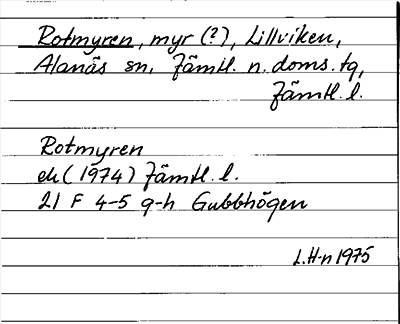 Rotmyren, myr (?), Lillviken,
Alanäs sn, Jämtl. n. doms. tg,
Jämtl. l.
Rotmyren
ek (1974) Jämtl. l.
21 F 4-5 g-h Gubbhögen
L.H-n 1975